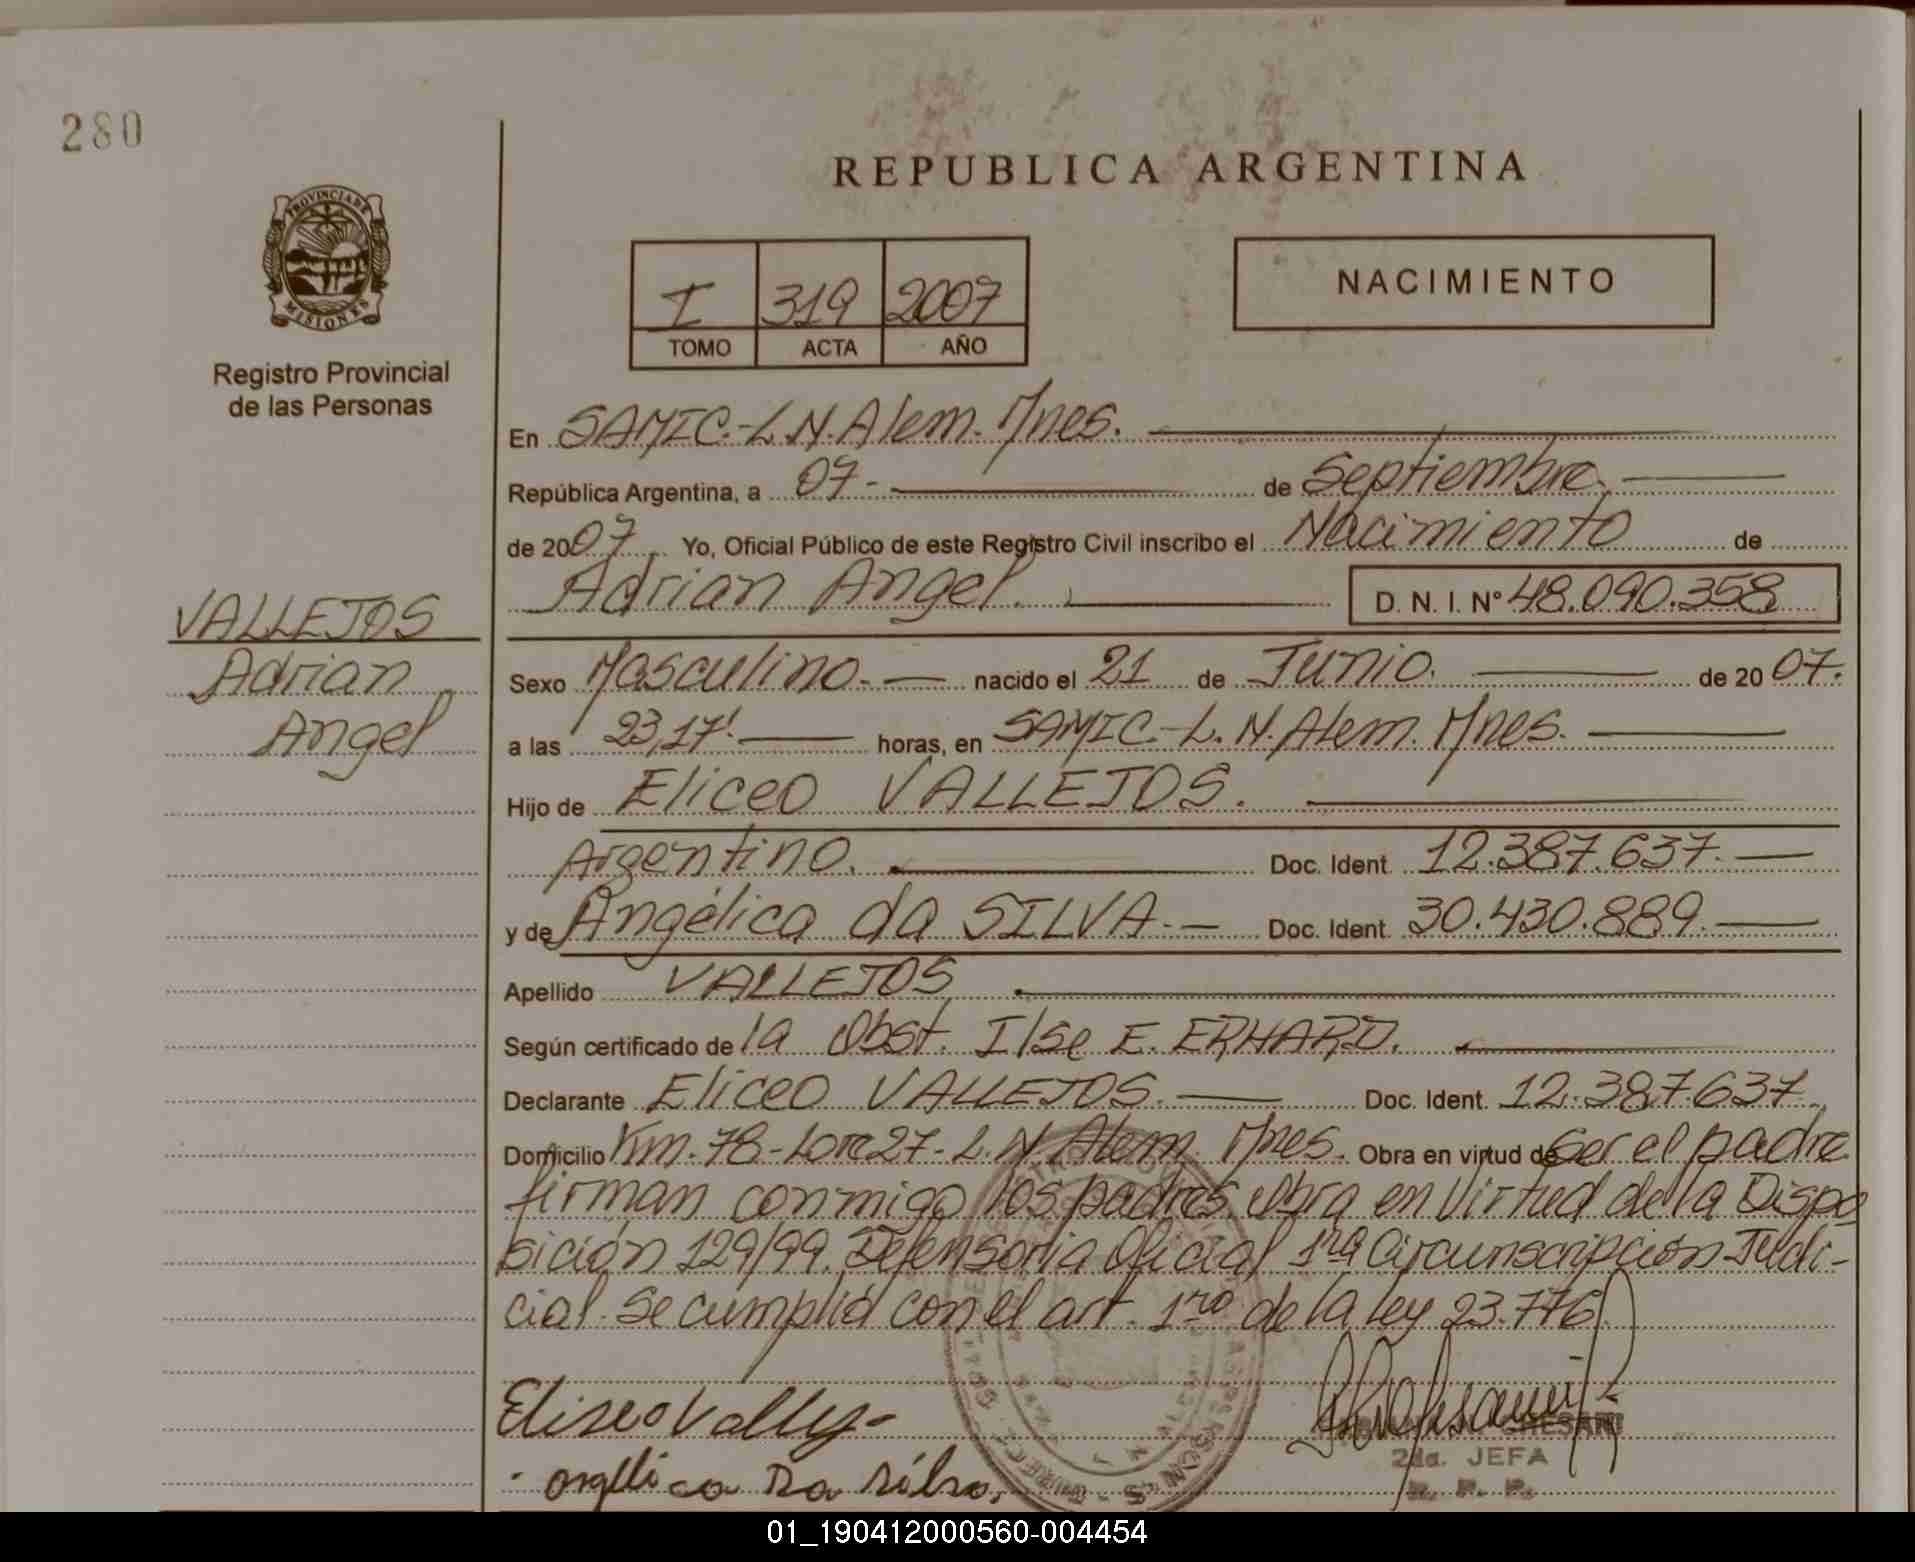 280
REPUBLICA ARGENTINA
PROVINCIA DE
MISIONES
Registro Provincial
de las Personas
I 319 2007
TOMO ACTA AÑO
NACIMIENTO
En SAMIC.-L.N.Alem. Mnes.
República Argentina, a 07- de Septiembre.
de 2007. Yo, Oficial Público de este Registro Civil inscribo el Nacimiento de
Adrian Angel. D. N. I. N° 48.090.358
VALLEJOS
Adrian
Angel
Sexo Masculino.- nacido el 21 de Junio. de 2007.
a las 23,17'. horas, en SAMIC.-L.N.Alem. Mnes.
Hijo de Eliceo VALLEJOS.
Argentino. Doc. Ident. 12.387.637.
y de Angélica da SILVA.- Doc. Ident. 30.430.889.
Apellido VALLEJOS
Según certificado de la Obst. Ilse E. ERHARD.
Declarante Eliceo VALLEJOS. Doc. Ident. 12.387.637
Domicilio Km.78-Lote27-L.N.Alem. Mnes. Obra en virtud de ser el padre
firman conmigo los padres, obra en Virtud de la Dispo
sición 129/99. Defensoria Oficial 1ra Circunscripción Judi-
cial. Se cumplió con el art. 1ro de la ley 23.776
Eliseo Vallejos
angelica Da silva.
2da. JEFA
R. P. P.
01_190412000560-004454